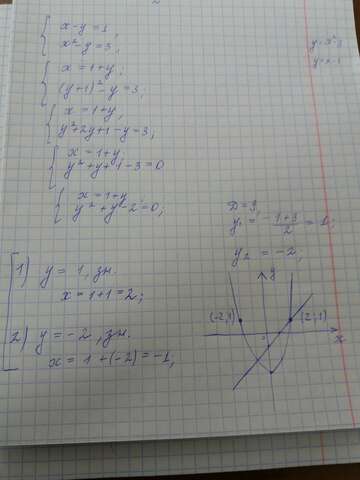 x - y = 1,
x² - y = 3,
x = 1 + y;
(y+1)² - y = 3,
x = 1 + y,
y² + 2y + 1 - y = 3,
x = 1 + y,
y² + y + 1 - 3 = 0
x = 1 + y,
y² + y - 2 = 0,
D = 9,
y₁ = (-1+3)/2 = 1;
y₂ = -2;
1) y = 1, зн.
x = 1 + 1 = 2;
2) y = -2, зн.
x = 1 + (-2) = -1,
y
(-2;1)
(2;1)
x